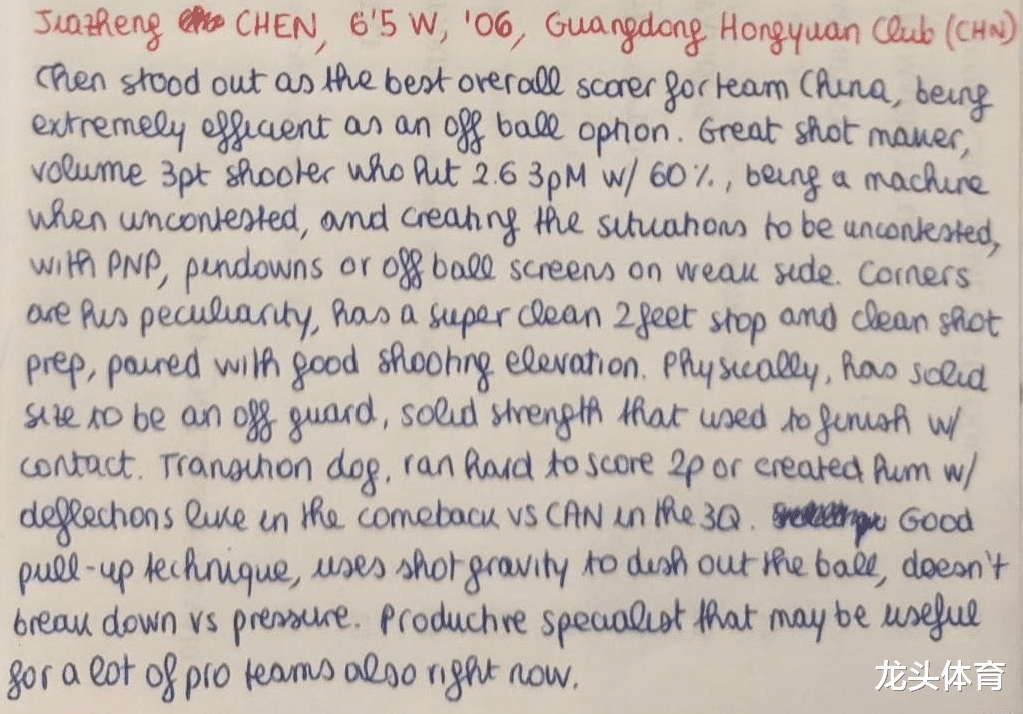 Jiazheng CHEN, 6'5 W, '06, Guangdong Hongyuan Club (CHN)
Chen stood out as the best overall scorer for team China, being
extremely efficient as an off ball option. Great shot maker,
volume 3pt shooter who put 2.6 3pM w/ 60%, being a machine
when uncontested, and creating the situations to be uncontested,
with PNP, pindowns or off ball screens on weak side. Corners
are his peculiarity, has a super clean 2 feet stop and clean shot
prep, paired with good shooting elevation. Physically, has solid
size to be an off guard, solid strength that used to finish w/
contact. Transition dog, ran hard to score 2p or created him w/
deflections like in the comeback vs CAN in the 3Q. Good
pull-up technique, uses shot gravity to dish out the ball, doesn't
break down vs pressure. Productive specialist that may be useful
for a lot of pro teams also right now.
龙头体育